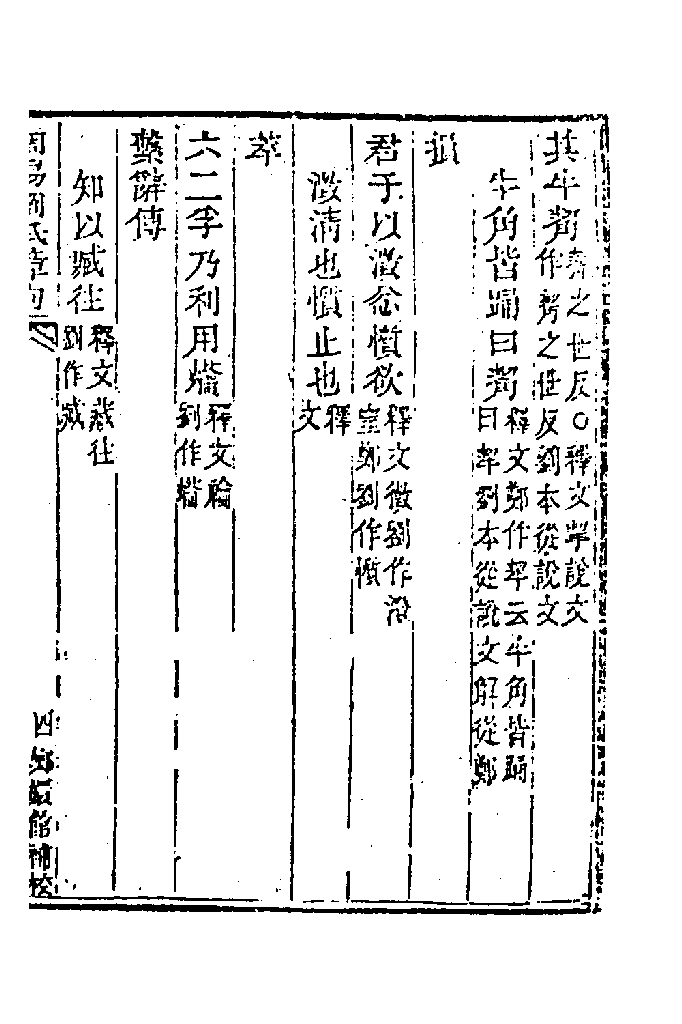 其牛觢觢之世反○釋文掣說文
作觢之世反劉本從說文
牛角皆踊曰觢釋文鄭作挈云牛角皆踊
曰挈劉本從說文解從鄭
損
君子以澂忿懫欲釋文徵劉作澂
窒鄭劉作懫
澂清也懫止也釋
文
萃
六二孚乃利用爚釋文禴
劉作爚
繫辭傳
知以臧往釋文藏往
劉作臧
周易劉氏章句 四 嫏嬛館補校